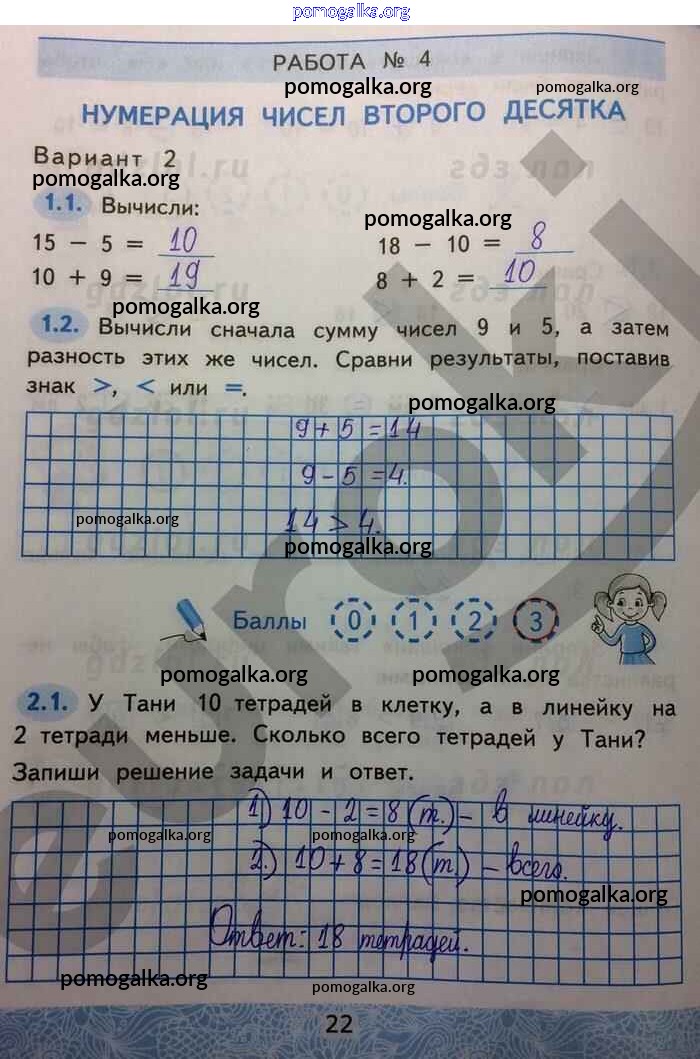 pomogalka.org
РАБОТА № 4
pomogalka.org pomogalka.org
НУМЕРАЦИЯ ЧИСЕЛ ВТОРОГО ДЕСЯТКА
Вариант 2
pomogalka.org
1.1. Вычисли:
pomogalka.org
15 - 5 = 10 18 - 10 = 8
10 + 9 = 19 8 + 2 = 10
pomogalka.org
1.2. Вычисли сначала сумму чисел 9 и 5, а затем
разность этих же чисел. Сравни результаты, поставив
знак >, < или =.
pomogalka.org
9 + 5 = 14
9 - 5 = 4.
pomogalka.org
14 > 4.
pomogalka.org
Баллы 0 1 2 3
pomogalka.org pomogalka.org
2.1. У Тани 10 тетрадей в клетку, а в линейку на
2 тетради меньше. Сколько всего тетрадей у Тани?
Запиши решение задачи и ответ.
1) 10 - 2 = 8 (т.) - в линейку.
pomogalka.org pomogalka.org
2.) 10 + 8 = 18 (т.) - всего.
pomogalka.org
Ответ: 18 тетрадей.
pomogalka.org pomogalka.org
22
euroki